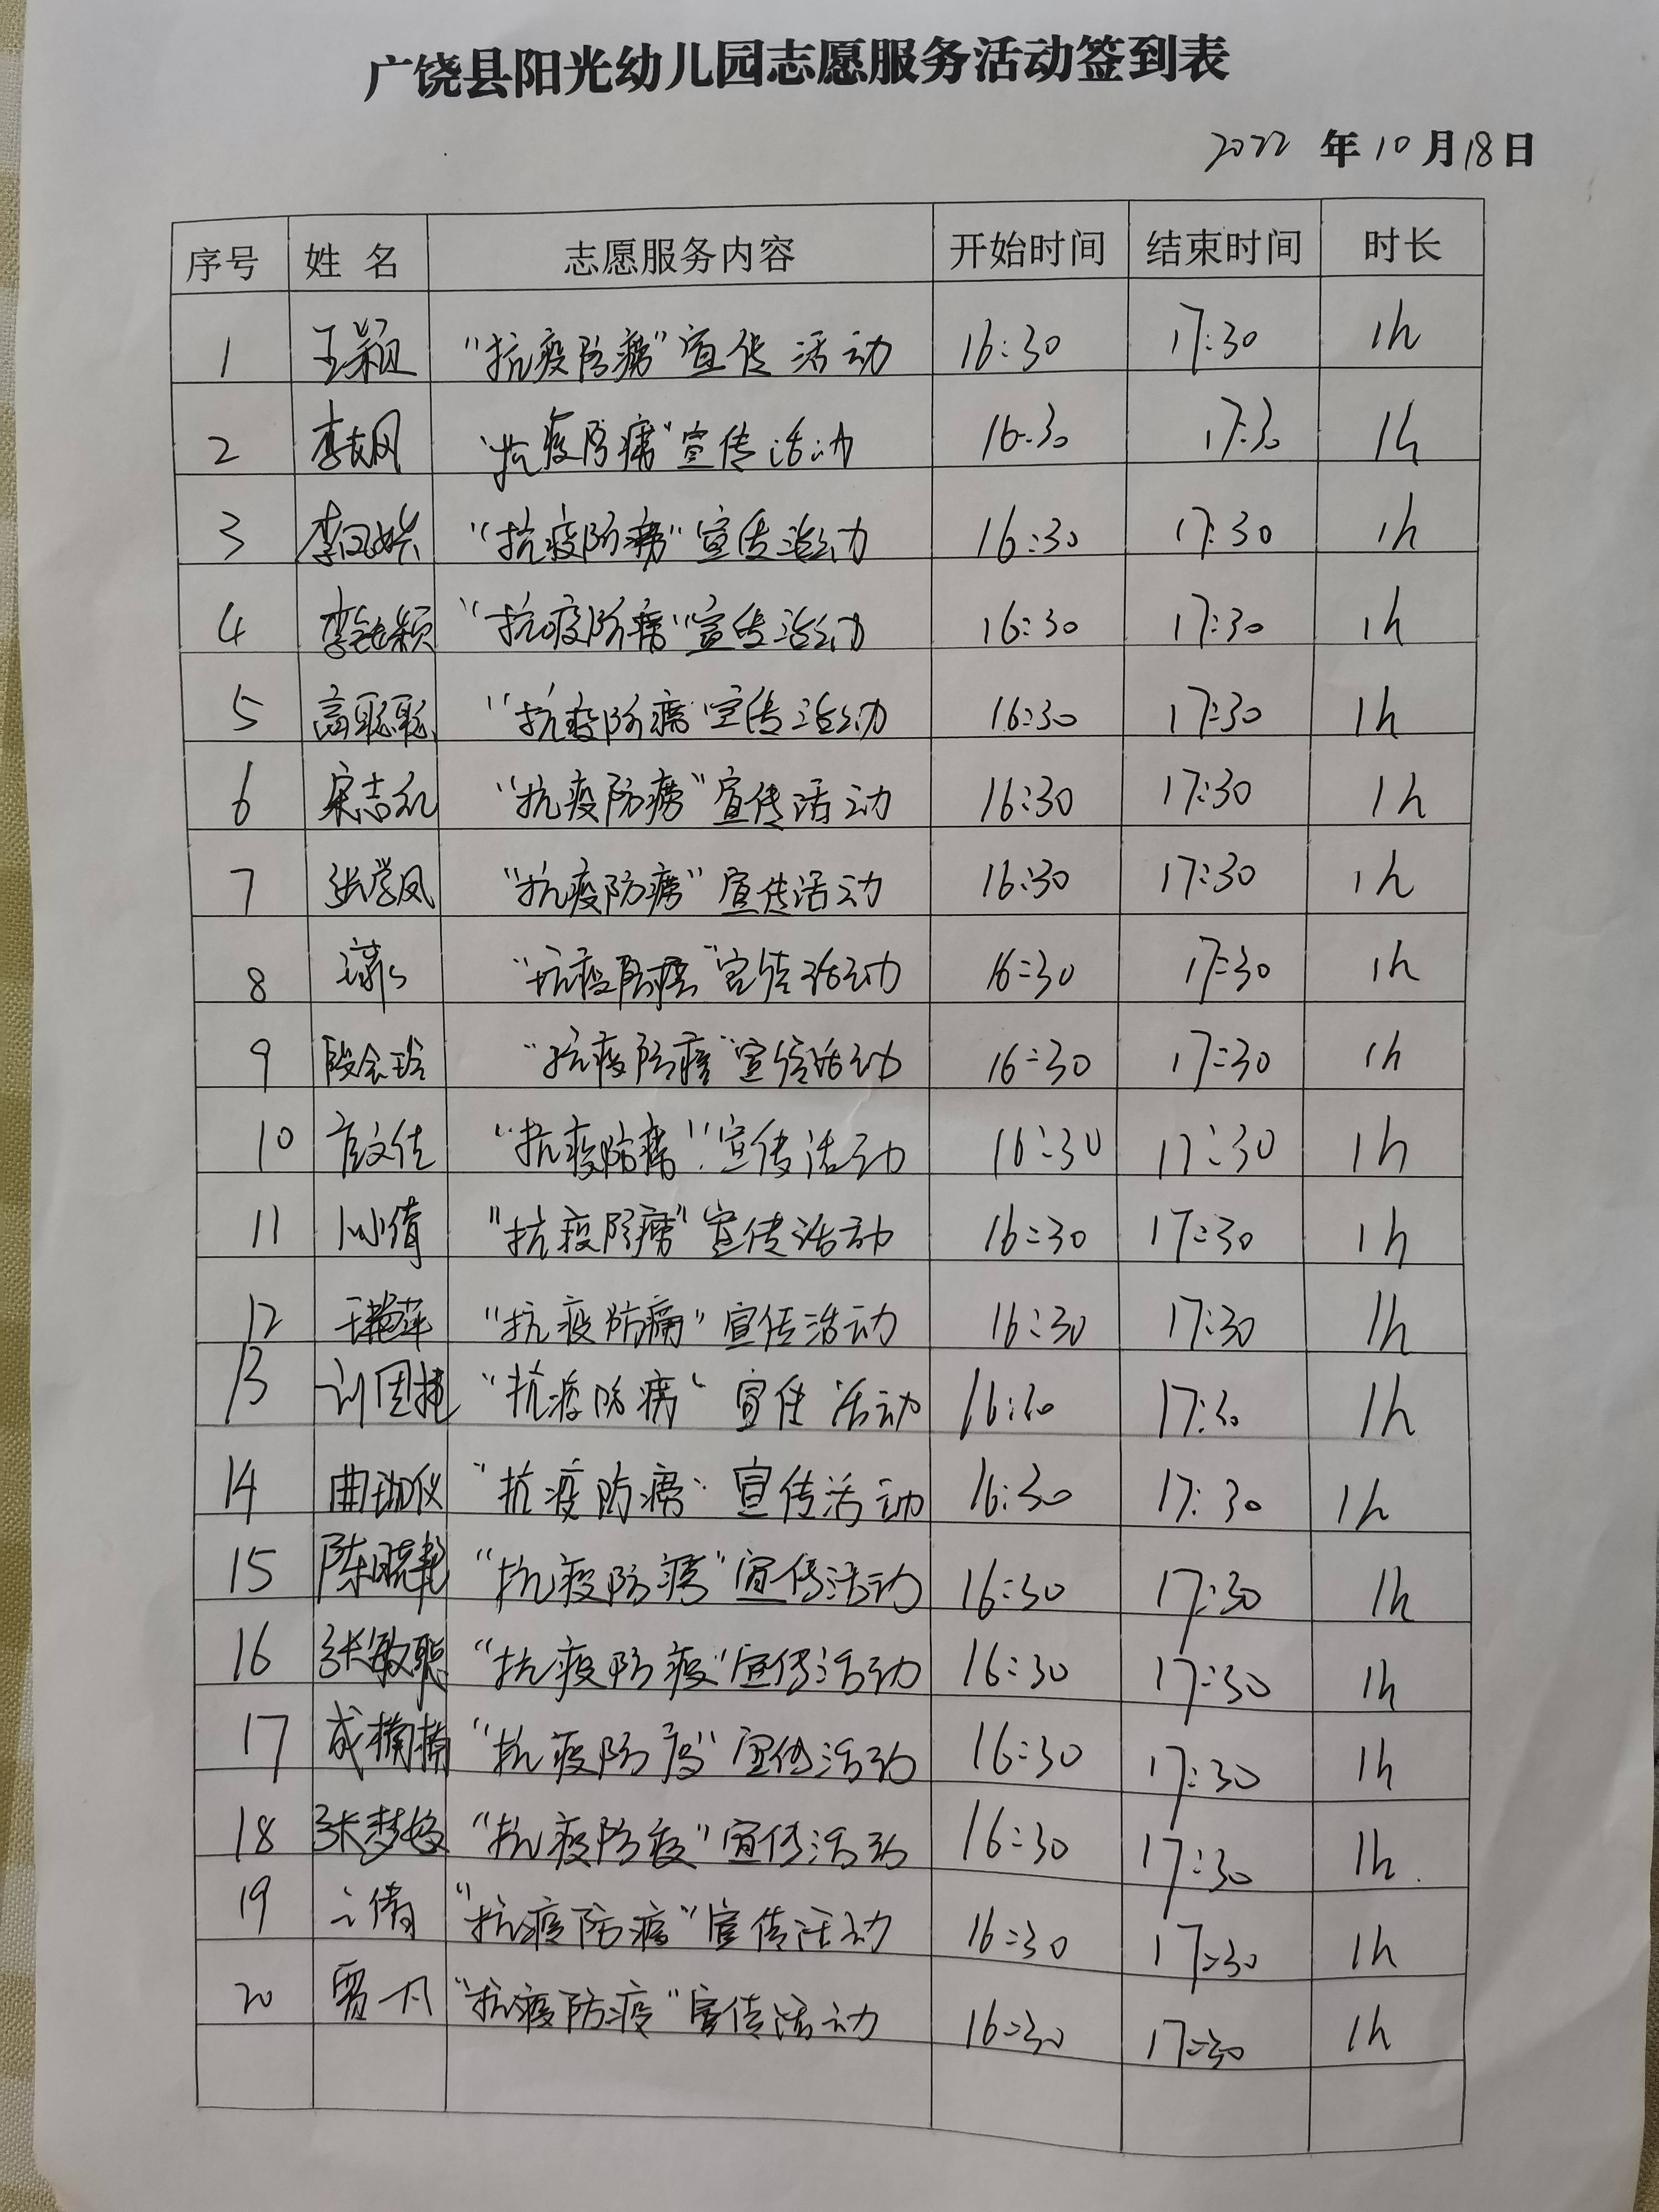 广饶县阳光幼儿园志愿服务活动签到表
2022 年 10 月 18 日
序号 姓 名 志愿服务内容 开始时间 结束时间 时长
1 王颖 “抗疫防病”宣传活动 16:30 17:30 1h
2 “抗疫防病”宣传活动 16:30 17:30 1h
3 “抗疫防病”宣传活动 16:30 17:30 1h
4 “抗疫防病”宣传活动 16:30 17:30 1h
5 高聪聪 “抗疫防病”宣传活动 16:30 17:30 1h
6 “抗疫防病”宣传活动 16:30 17:30 1h
7 张学凤 “抗疫防病”宣传活动 16:30 17:30 1h
8 “抗疫防病”宣传活动 16:30 17:30 1h
9 段会玲 “抗疫防病”宣传活动 16:30 17:30 1h
10 “抗疫防病”宣传活动 16:30 17:30 1h
11 “抗疫防病”宣传活动 16:30 17:30 1h
12 王艳萍 “抗疫防病”宣传活动 16:30 17:30 1h
13 “抗疫防病”宣传活动 16:30 17:30 1h
14 曲珈仪 “抗疫防病”宣传活动 16:30 17:30 1h
15 陈晓艳 “抗疫防病”宣传活动 16:30 17:30 1h
16 张敏聪 “抗疫防疫”宣传活动 16:30 17:30 1h
17 成楠楠 “抗疫防疫”宣传活动 16:30 17:30 1h
18 “抗疫防疫”宣传活动 16:30 17:30 1h
19 “抗疫防疫”宣传活动 16:30 17:30 1h
20 “抗疫防疫”宣传活动 16:30 17:30 1h